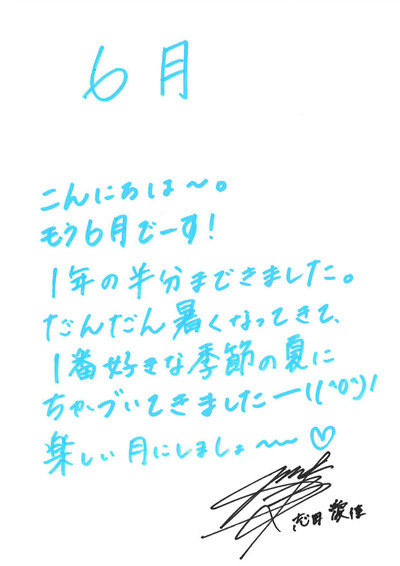 6月
こんにちは〜。
もう6月でーす!
1年の半分まできました。
だんだん暑くなってきて、
1番好きな季節の夏に
ちかづいてきましたー!(^o^)!
楽しい月にしましょ〜〜♡
志田 愛佳